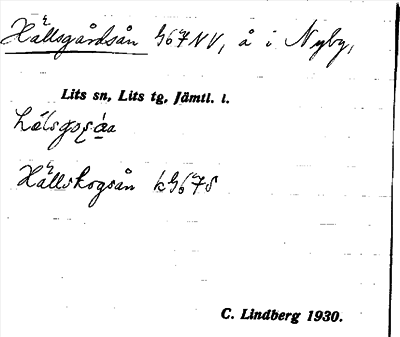 Hällsgårdsån G67NV, å i Nyby,
Lits sn, Lits tg, Jämtl. l.
Hällskogsån kG67S
C. Lindberg 1930.